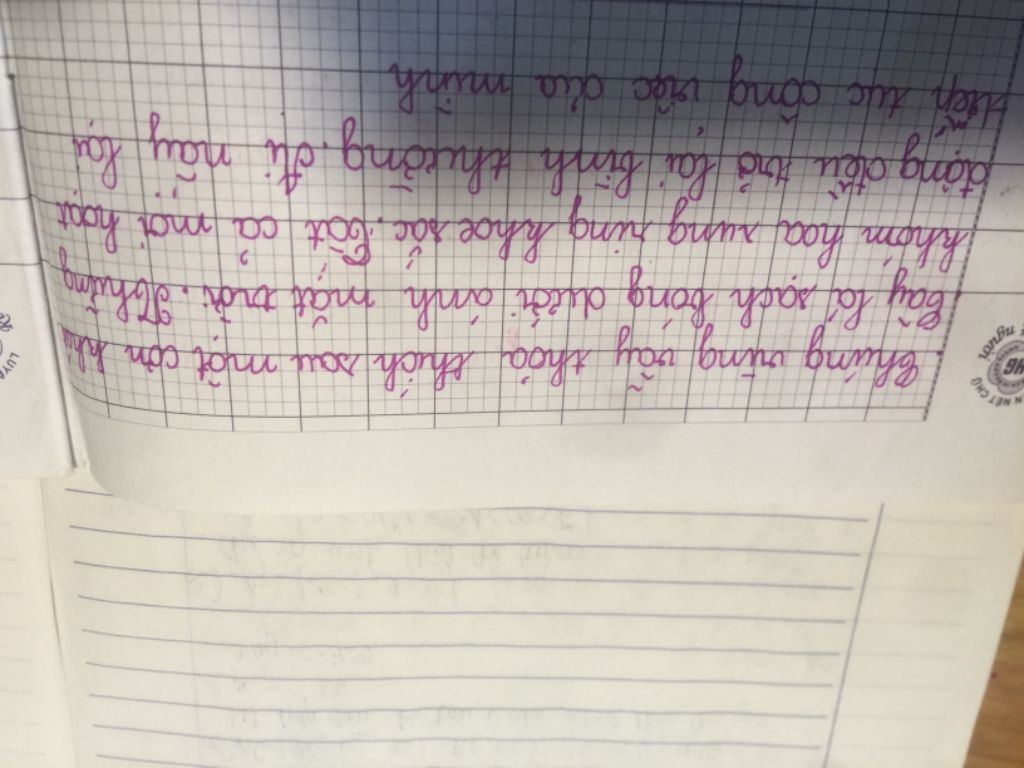 Chúng vùng vẫy thỏa thích sau một cơn
cây lá sạch bóng dưới ánh mặt trời. Những
khóm hoa rung rinh khoe sắc. Tất cả mọi hoạt
động đều trở lại bình thường. đi này lại
tiếp tục công việc của mình